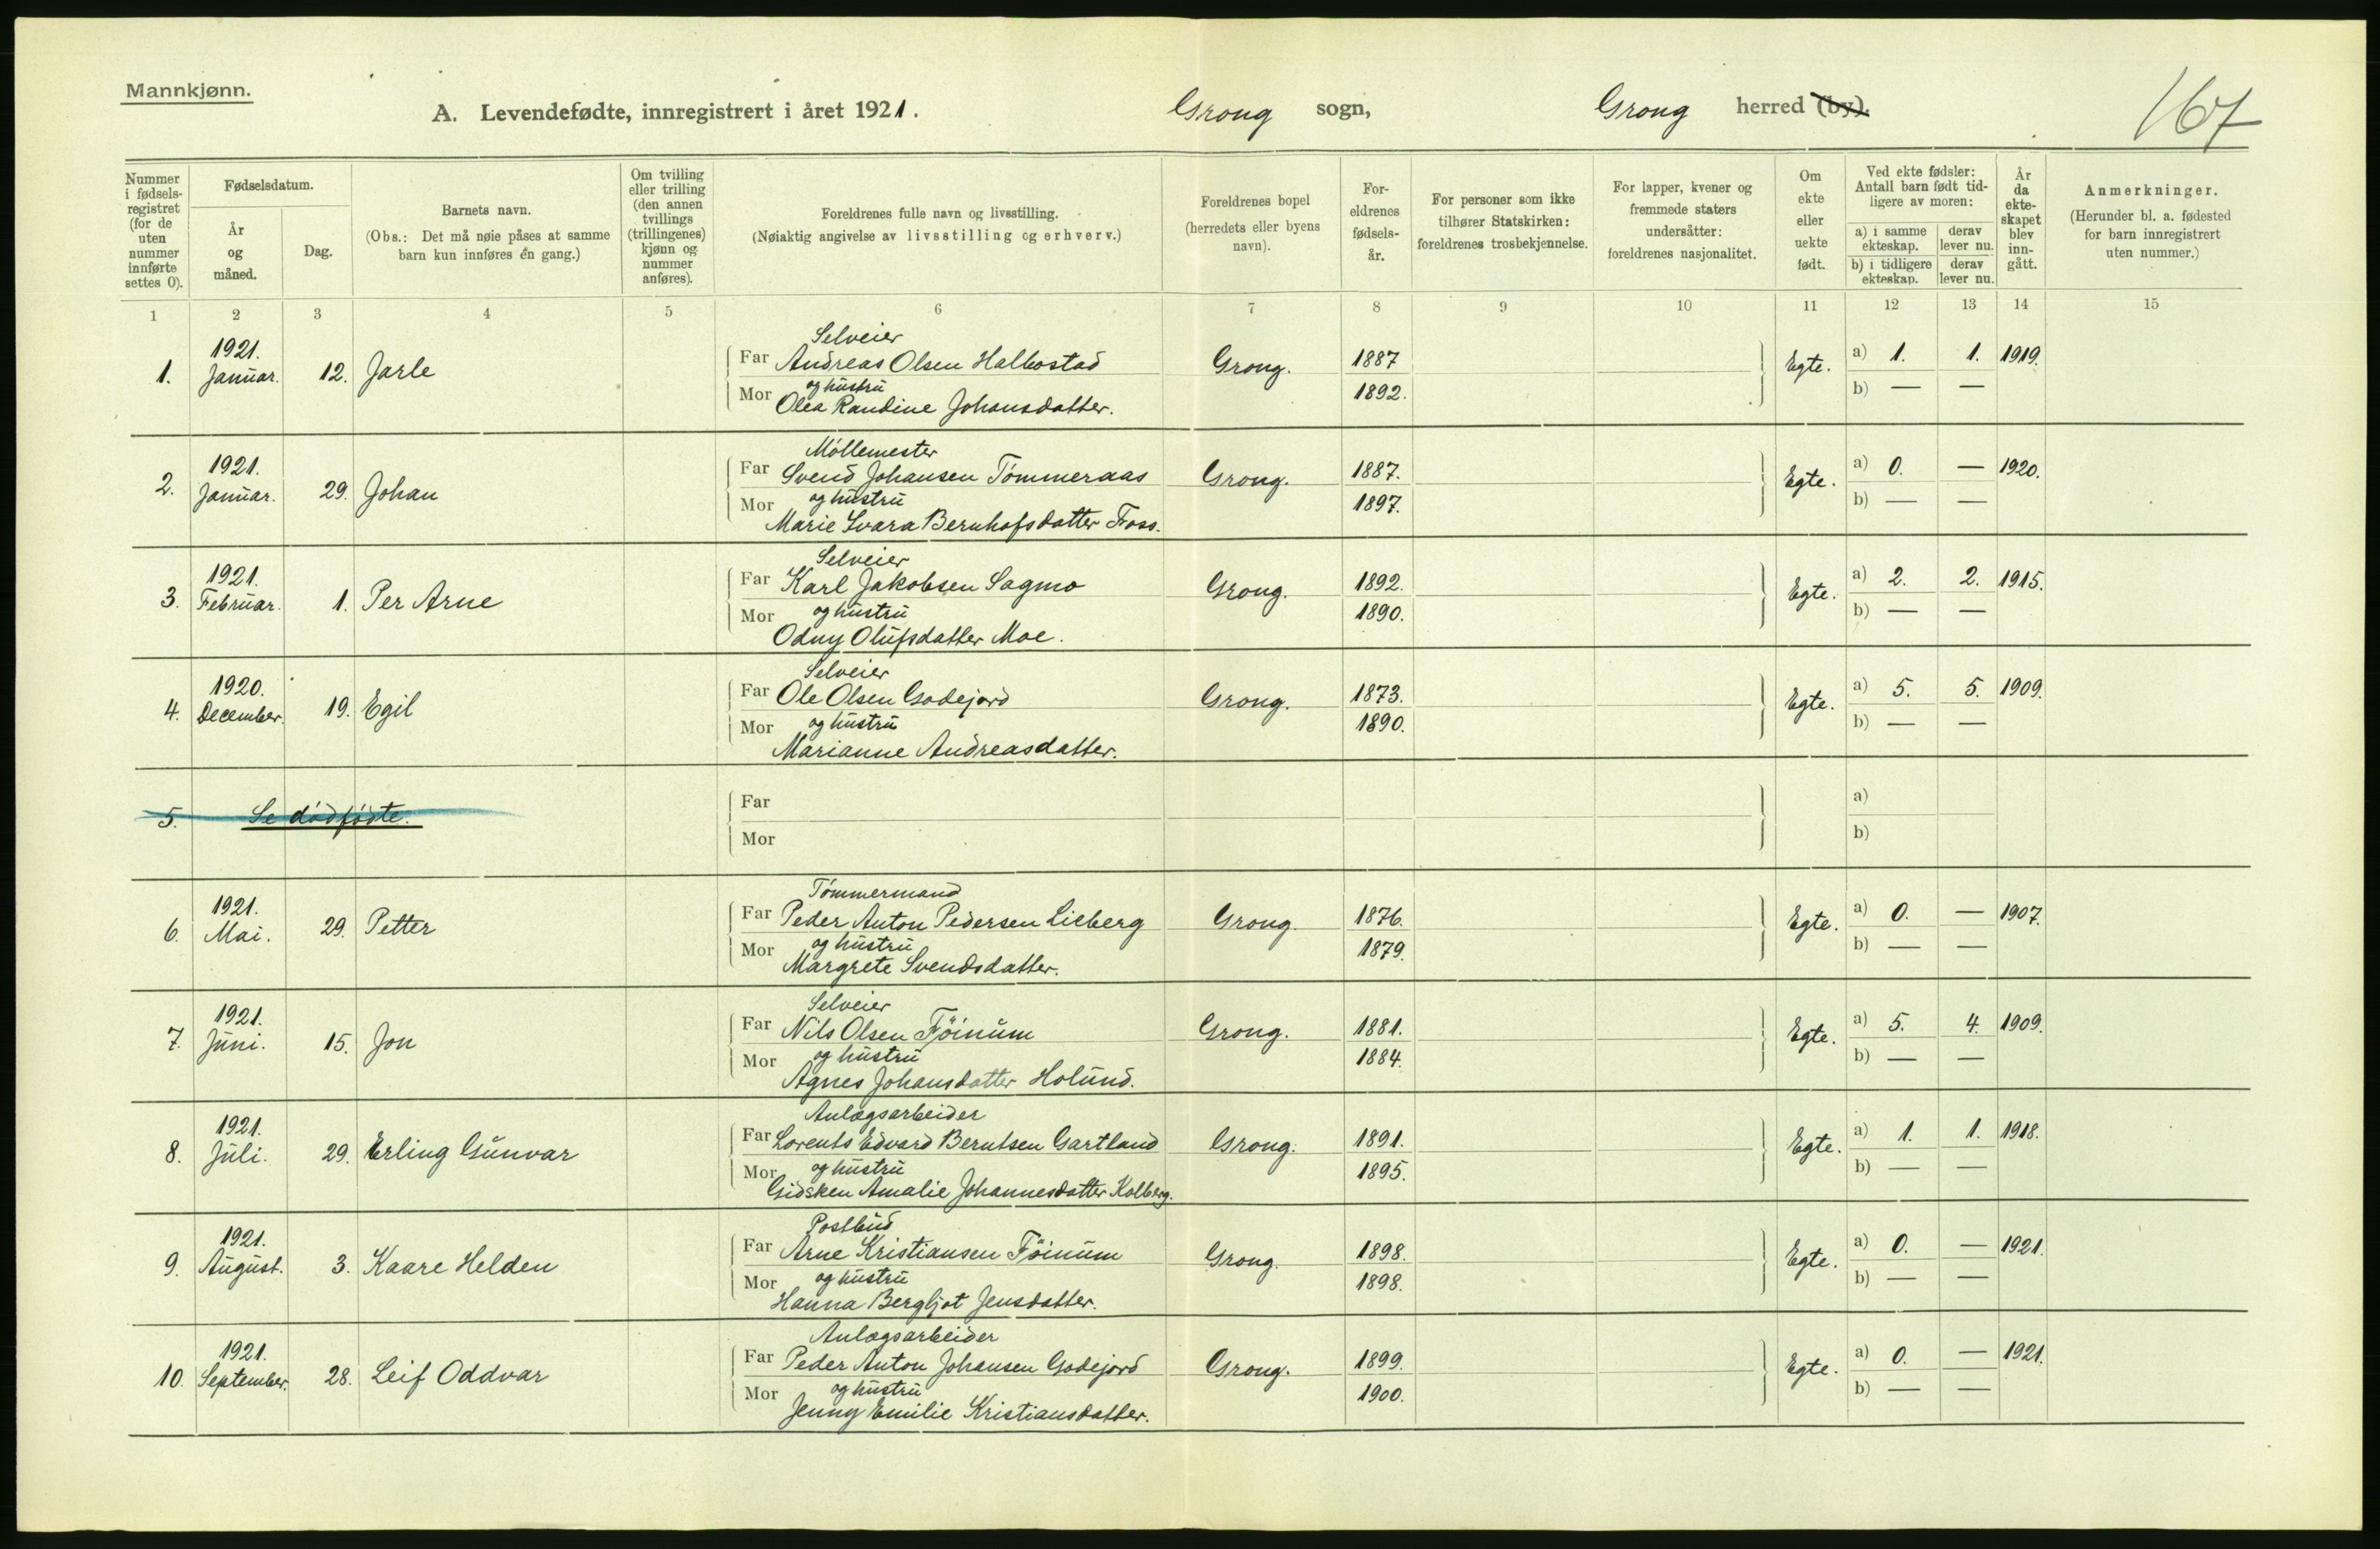 Mannkjønn.
A. Levendefødte, innregistrert i året 1921. Grong sogn, Grong herred (by). 167
Nummer i fødsels-registret (for de uten nummer innførte settes 0).
Fødselsdatum.
År og måned.
Dag.
Barnets navn.
(Obs.: Det må nøie påses at samme barn kun innføres én gang.)
Om tvilling eller trilling (den annen tvillings (trillingenes) kjønn og nummer anføres).
Foreldrenes fulle navn og livsstilling.
(Nøiaktig angivelse av livsstilling og erhverv.)
Foreldrenes bopel
(herredets eller byens navn).
For-eldrenes fødsels-år.
For personer som ikke tilhører Statskirken: foreldrenes trosbekjennelse.
For lapper, kvener og fremmede staters undersåtter: foreldrenes nasjonalitet.
Om ekte eller uekte født.
Ved ekte fødsler: Antall barn født tid-ligere av moren:
a) i samme ekteskap. derav lever nu.
b) i tidligere ekteskap. derav lever nu.
År da ekte-skapet blev inn-gått.
Anmerkninger.
(Herunder bl. a. fødested for barn innregistrert uten nummer.)
1 2 3 4 5 6 7 8 9 10 11 12 13 14 15
Selveier
1. 1921. Januar. 12. Jarle Far Andreas Olsen Halbostad Grong. 1887 Egte. a) 1. 1. 1919.
og hustru
Mor Olea Randine Johansdatter. 1892. b) — —
Möllemester
2. 1921. Januar. 29. Johan Far Svend Johansen Tömmeraas Grong. 1887. Egte. a) 0. — 1920.
og hustru
Mor Marie Svara Bernhofsdatter Foss. 1897. b) — —
Selveier
3. 1921. Februar. 1. Per Arne Far Karl Jakobsen Sagmo Grong. 1892. Egte. a) 2. 2. 1915.
og hustru
Mor Odny Olufsdatter Moe. 1890. b) — —
Selveier
4. 1920. December. 19. Egil Far Ole Olsen Godejord Grong. 1873. Egte. a) 5. 5. 1909.
og hustru
Mor Marianne Andreasdatter. 1890. b) — —
5. Se dödfödte. Far a)
Mor b)
Tömmermand
6. 1921. Mai. 29. Petter Far Peder Anton Pedersen Lieberg Grong. 1876. Egte. a) 0. — 1907.
og hustru
Mor Margrete Svendsdatter. 1879. b) — —
Selveier
7. 1921. Juni. 15. Jon Far Nils Olsen Föinum Grong. 1881. Egte. a) 5. 4. 1909.
og hustru
Mor Agnes Johansdatter Holund. 1884. b) — —
Anlægsarbeider
8. 1921. Juli. 29. Erling Gunvar Far Lorents Edvard Berntsen Gartland Grong. 1891. Egte. a) 1. 1. 1918.
og hustru
Mor Gidsken Amalie Johannesdatter Kolberg. 1895. b) — —
Postbud
9. 1921. August. 3. Kaare Helden Far Arne Kristiansen Föinum Grong. 1898. Egte. a) 0. — 1921.
og hustru
Mor Hanna Bergljot Jensdatter. 1898. b) — —
Anlægsarbeider
10. 1921. September. 28. Leif Oddvar Far Peder Anton Johansen Godejord Grong. 1899. Egte. a) 0. — 1921.
og hustru
Mor Jenny Emilie Kristiansdatter. 1900. b) — —